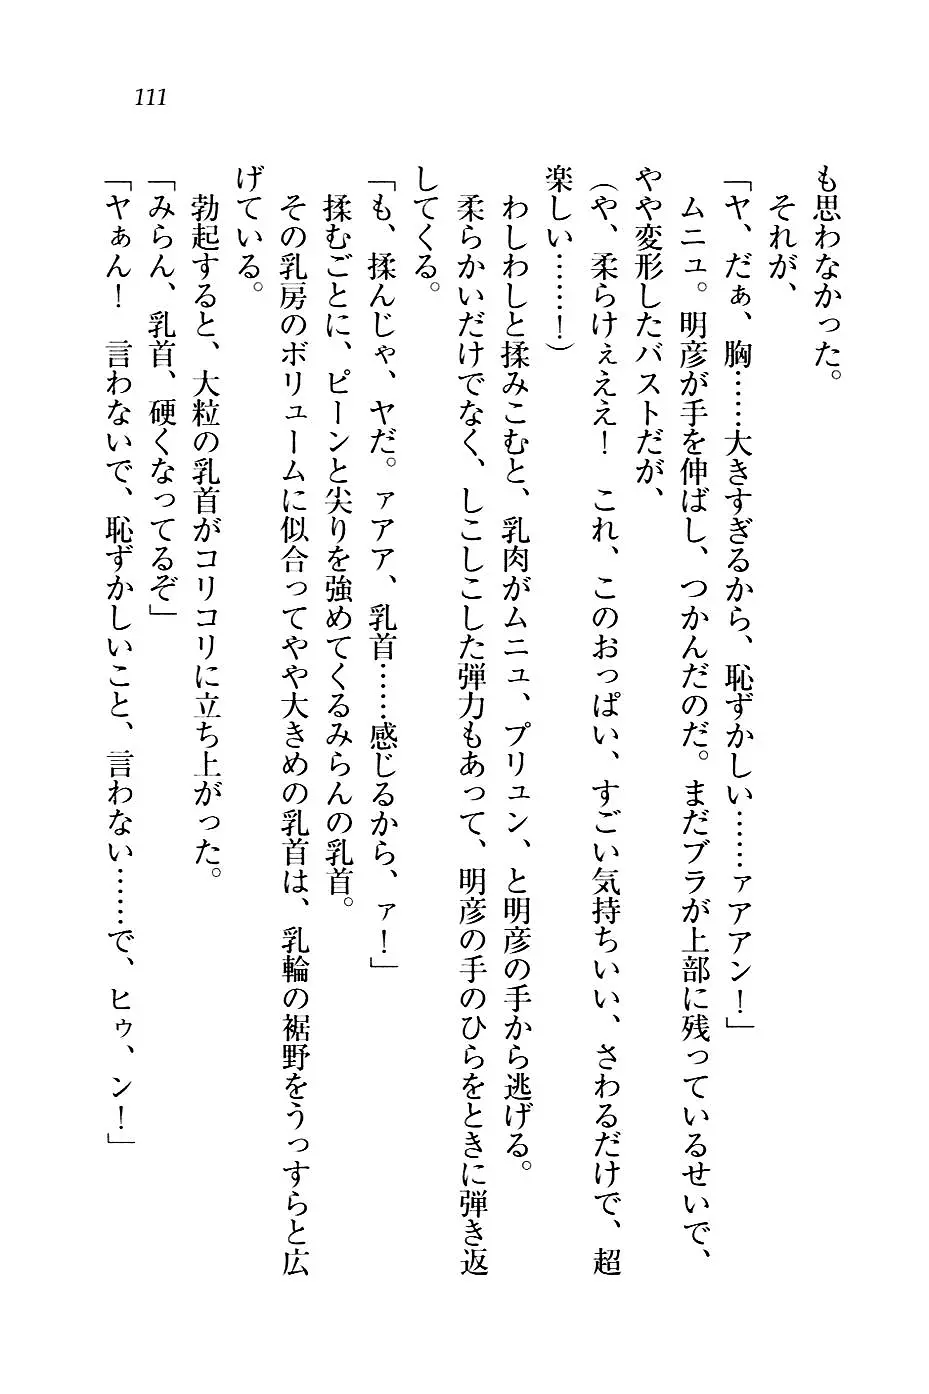 111
も思わなかった。
それが、
「ヤ、だぁ、胸……大きすぎるから、恥ずかしい……ァアアン！」
ムニュ。明彦が手を伸ばし、つかんだのだ。まだブラが上部に残っているせいで、
やや変形したバストだが、
（や、柔らけぇええ！　これ、このおっぱい、すごい気持ちいい、さわるだけで、超
楽しい……！）
わしわしと揉みこむと、乳肉がムニュ、プリュン、と明彦の手から逃げる。
柔らかいだけでなく、しこしこした弾力もあって、明彦の手のひらをときに弾き返
してくる。
「も、揉んじゃ、ヤだ。ァアア、乳首……感じるから、ァ！」
揉むごとに、ピーンと尖りを強めてくるみらんの乳首。
その乳房のボリュームに似合ってやや大きめの乳首は、乳輪の裾野をうっすらと広
げている。
勃起すると、大粒の乳首がコリコリに立ち上がった。
「みらん、乳首、硬くなってるぞ」
「ヤぁん！　言わないで、恥ずかしいこと、言わない……で、ヒゥ、ン！」